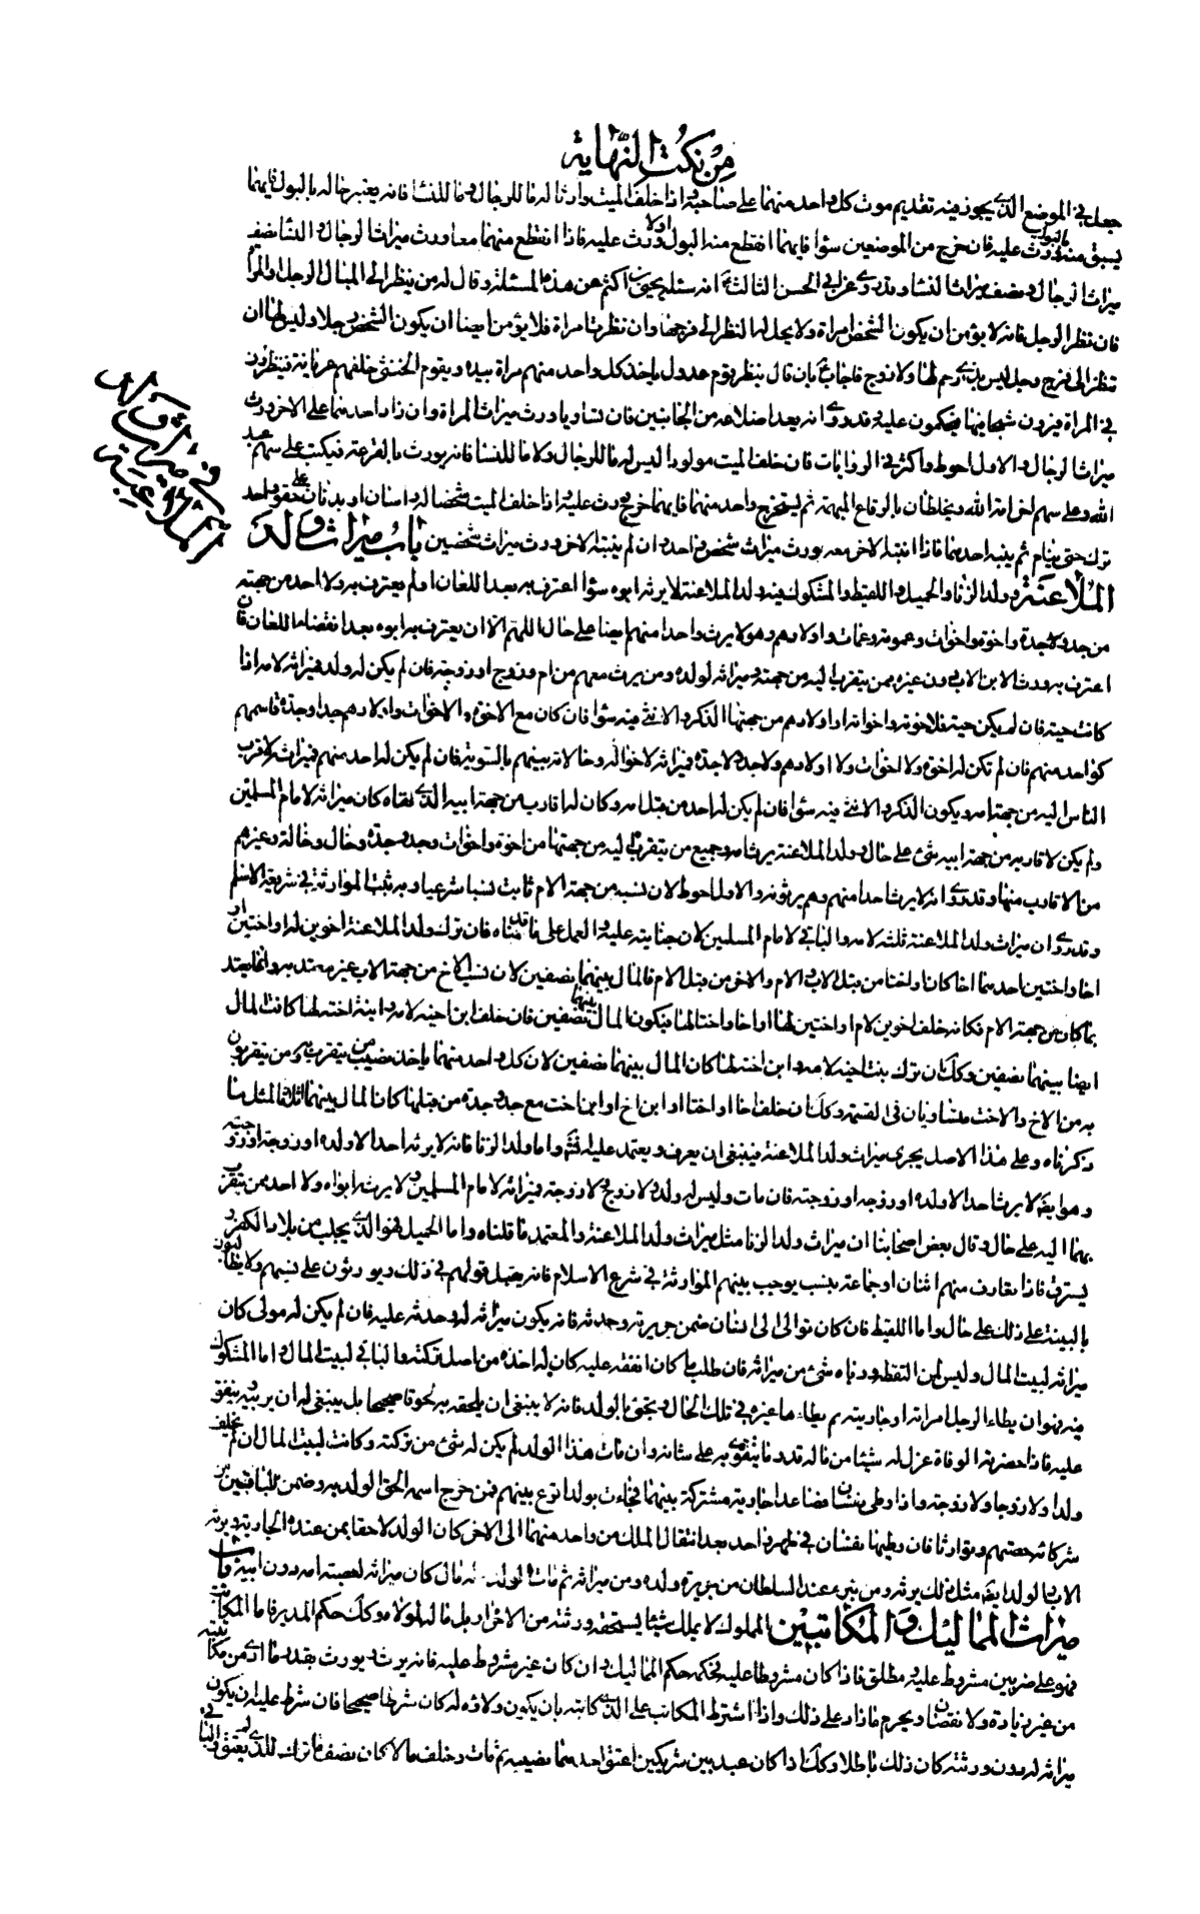 من نكت النهاية
جعل في الموضع الذي يجوز فيه تقديم موت كل واحد منهما على صاحبه و اذا خلف الميت وارثا له ما للرجال و ما للنساء فانه يعتبر حاله بالبول فايهما
يسبق منه البول ورث عليه فان خرج من الموضعين سواء فايهما انقطع منه البول اولا ورث عليه فاذا انقطع منهما معا ورث ميراث الرجال و النساء نصف
ميراث الرجال و نصف ميراث النساء و قد روي عن ابي الحسن الثالث انه سئله يحيى بن اكثم عن هذه المسئلة و قال له من ينظر الى المبال الرجل او المراة
فان نظر الرجل فانه لا يؤمن ان يكون الشخص امراة ولا يحل له النظر الى فرجها وان نظرت امراة فلا يؤمن ايضا ان يكون الشخص رجلا وليس لها ان
تنظر الى فرج رجل ليس بذي رحم لها ولا زوج فاجاب بان قال ينظر قوم عدول ياخذ كل واحد منهم مراة بيده و يقوم الخنثى خلفهم عريانة فينظرون
في المراة فيرون شبحا فيها فيحكمون عليه و قد روي انه يعد اضلاعه من الجانبين فان تساويا ورث ميراث المراة وان زاد احدهما على الاخر ورث
ميراث الرجال و الاول احوط واكثر في الروايات فان خلف الميت مولودا ليس له ما للرجال ولا ما للنساء فانه يورث بالقرعة فيكتب على سهم عبد
الله وعلى سهم اخر امة الله ويخلطان بالرقاع المبهمة ثم يستخرج واحد منهما فايهما خرج ورث عليه و اذا خلف الميت شخصا له راسان او بدنان على حقو واحد
ترك حتى ينام ثم ينبه احدهما فاذا انتبه الاخر معه يورث ميراث شخص واحد و ان لم ينتبه الاخر ورث ميراث شخصين باب ميراث ولد
الملاعنة و ولد الزنا والحميل و اللقيط والمشكوك فيه ولد الملاعنة لا يرثه ابوه سواء اعترف به بعد اللعان او لم يعترف به ولا احد من جهته
من جد و لا جدة و اخوة و اخوات و عمومة و عمات و اولادهم وهو لا يرث واحدا منهم ايضا على حال اللهم الا ان يعترف به ابوه بعد انقضاء اللعان فان
اعترف به ورث الابن الاب دون غيره ممن يتقرب اليه من جهته و ميراثه لولده ومن يرث معهم من ام وزوج او زوجة فان لم يكن له ولد فميراثه لامه اذا
كانت حية فان لم يكن حية فلاخوته و اخواته او اولادهم من جهتها الذكر و الانثى فيه سواء فان كان مع الاخوة و الاخوات او اولادهم جد او جدة قاسمهم
كواحد منهم فان لم تكن له اخوة ولا اخوات ولا اولادهم ولا جد ولا جدة فميراثه لاخواله وخالاته بينهم بالسوية فان لم يكن له احد منهم فميراثه لاقرب
الناس اليه من جهة امه ويكون الذكر و الانثى فيه سواء فان لم يكن له احد من قبل امه وكان له اقارب من جهة ابيه الذي نفاه كان ميراثه لامام المسلمين
ولم يكن لاقاربه من جهة ابيه شئ على حال و ولد الملاعنة يرث امه و جميع من يتقرب اليه من جهتها من اخوة و اخوات وجد و جدة و خال و خالة و غيرهم
من الاقارب منها و قد روي انه لا يرث احدا منهم و هم يرثونه و الاول احوط لان نسبه من جهة الام ثابت نسبا شرعيا و به تثبت الموارثة في شريعة الاسلام
و قد روي ان ميراث ولد الملاعنة ثلثه لامه و الباقي لامام المسلمين لان جنايته عليه و العمل على ما قدمناه فان ترك ولد الملاعنة اخوين له او اختين او
اخا واختين احدهما اخا كان او اختا من قبل الاب و الام والاخر من قبل الام فالمال بينهما نصفين لان نسب الاخ من جهة الاب غير معتد به وانما يعتد
بما كان من جهة الام فكانه خلف اخوين لام او اختين لها او اخا واختا لها فيكون المال بينهما نصفين فان خلف ابن اخيه لامه و ابنة اخته لها كانت المال
ايضا بينهما نصفين وكك ان ترك بنت اخيه لامه و ابن اخته لها كان المال بينهما نصفين لان كل واحد منهما ياخذ نصيب من يتقرب به ومن يتقربون
به من الاخ و الاخت متساويان في القسمة وكك ان خلف اخا او اختا او ابن اخ او ابن اخت مع جد و جدة من قبلها كان المال بينهما اثلاثا لمثل ما
ذكرناه وعلى هذا الاصل يجري ميراث ولد الملاعنة فينبغي ان يعرف ويعتمد عليه واما ولد الزنا فانه لا يرثه احد الا ولده او زوجه او زوجته
وهو ايضا لا يرث احدا الا ولده او زوجه او زوجته فان مات وليس له ولد ولا زوج ولا زوجة فميراثه لامام المسلمين و لا يرثه ابواه ولا احد ممن يتقرب
بهما اليه على حال وقال بعض اصحابنا ان ميراث ولد الزنا مثل ميراث ولد الملاعنة والمعتمد ما قلناه واما الحميل فهو الذي يجلب من بلاد الكفر و
يسترق فاذا تعارف منهم اثنان او جماعة بنسب يوجب بينهم الموارثة في شرع الاسلام فانه يقبل قولهم في ذلك ويورثون على نسبهم ولا يطالبون
بالبينة على ذلك على حال واما اللقيط فان كان توالى الى انسان ضمن جريرته وحدثه فانه يكون ميراثه له وحدثه عليه فان لم يكن له مولى كان
ميراثه لبيت المال وليس لمن التقطه ورباه شئ من ميراثه فان طلب ما كان انفقه عليه كان له اخذه من اصل تركته والباقي لبيت المال و اما المشكوك
فيه فهو ان يطاء الرجل امراته او جاريته ثم يطاءها غيره في تلك الحال و تجئ بالولد فانه لا ينبغي ان يلحقه به لحوقا صحيحا بل ينبغي له ان يربيه وينفق
عليه فاذا حضرته الوفاة عزل له شيئا من ماله قدر ما يتقوى به على شانه وان مات هذا الولد لم يكن له شئ من تركته وكانت لبيت المال ان لم يخلف
ولدا ولا زوجا ولا زوجة و اذا وطئ نفسان فصاعدا جارية مشتركة بينهما فجاءت بولد اقرع بينهم فمن خرج اسمه الحق الولد به وضمن للباقين من
شركائه حصتهم وتوارثا فان وطئها نفسان في طهر واحد بعد انتقال الملك من واحد منهما الى الاخر كان الولد لاحقا بمن عنده الجارية و يرثه
الاب و الولد ايضا مثل ذلك يرثه ومن تبرء عند السلطان من جريرة ولده ومن ميراثه ثم مات الولد وله مال كان ميراثه لعصبة امه دون ابيه باب
ميراث المماليك و المكاتبين المملوك لا يملك شيئا يستحقه ورثته من الاحرار بل ماله لمولاه وكك حكم المدبر فاما المكاتب
فهو على ضربين مشروط عليه و مطلق فاذا كان مشروطا عليه فحكمه حكم المماليك و ان كان غير مشروط عليه فانه يرث ويورث بقدر ما ادى من مكاتبته
من غير زيادة ولا نقصان و يحرم ما زاد على ذلك واذا اشترط المكاتب على الذي كاتبه بان يكون ولاؤه له كان شرطا صحيحا فان شرط عليه ان يكون
ميراثه له دون ورثته كان ذلك باطلا وكك اذا كان عبد بين شريكين اعتق احدهما نصيبه ثم مات وخلف مالا كان نصف ما ترك للذي لم يعتق و الباقي
في ميراث ولد
الملاعنة